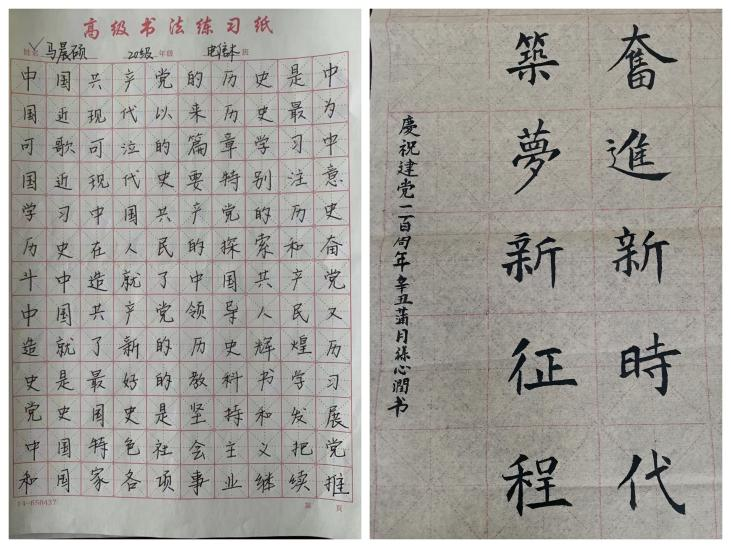 高级书法练习纸
姓名 马晨硕 20级 年级 电信本 班
中国共产党的历史是中
国近现代以来历史最为
可歌可泣的篇章学习中
国近现代史要特别注意
学习中国共产党的历史
历史在人民的探索和奋
斗中造就了中国共产党
中国共产党领导人民又
造就了新的历史辉煌历
史是最好的教科书学习
党史国史是坚持和发展
中国特色社会主义把党
和国家各项事业继续推
14-658437 第 页
奮進新時代
築夢新征程
慶祝建党一百周年辛丑蒲月徐心潤书